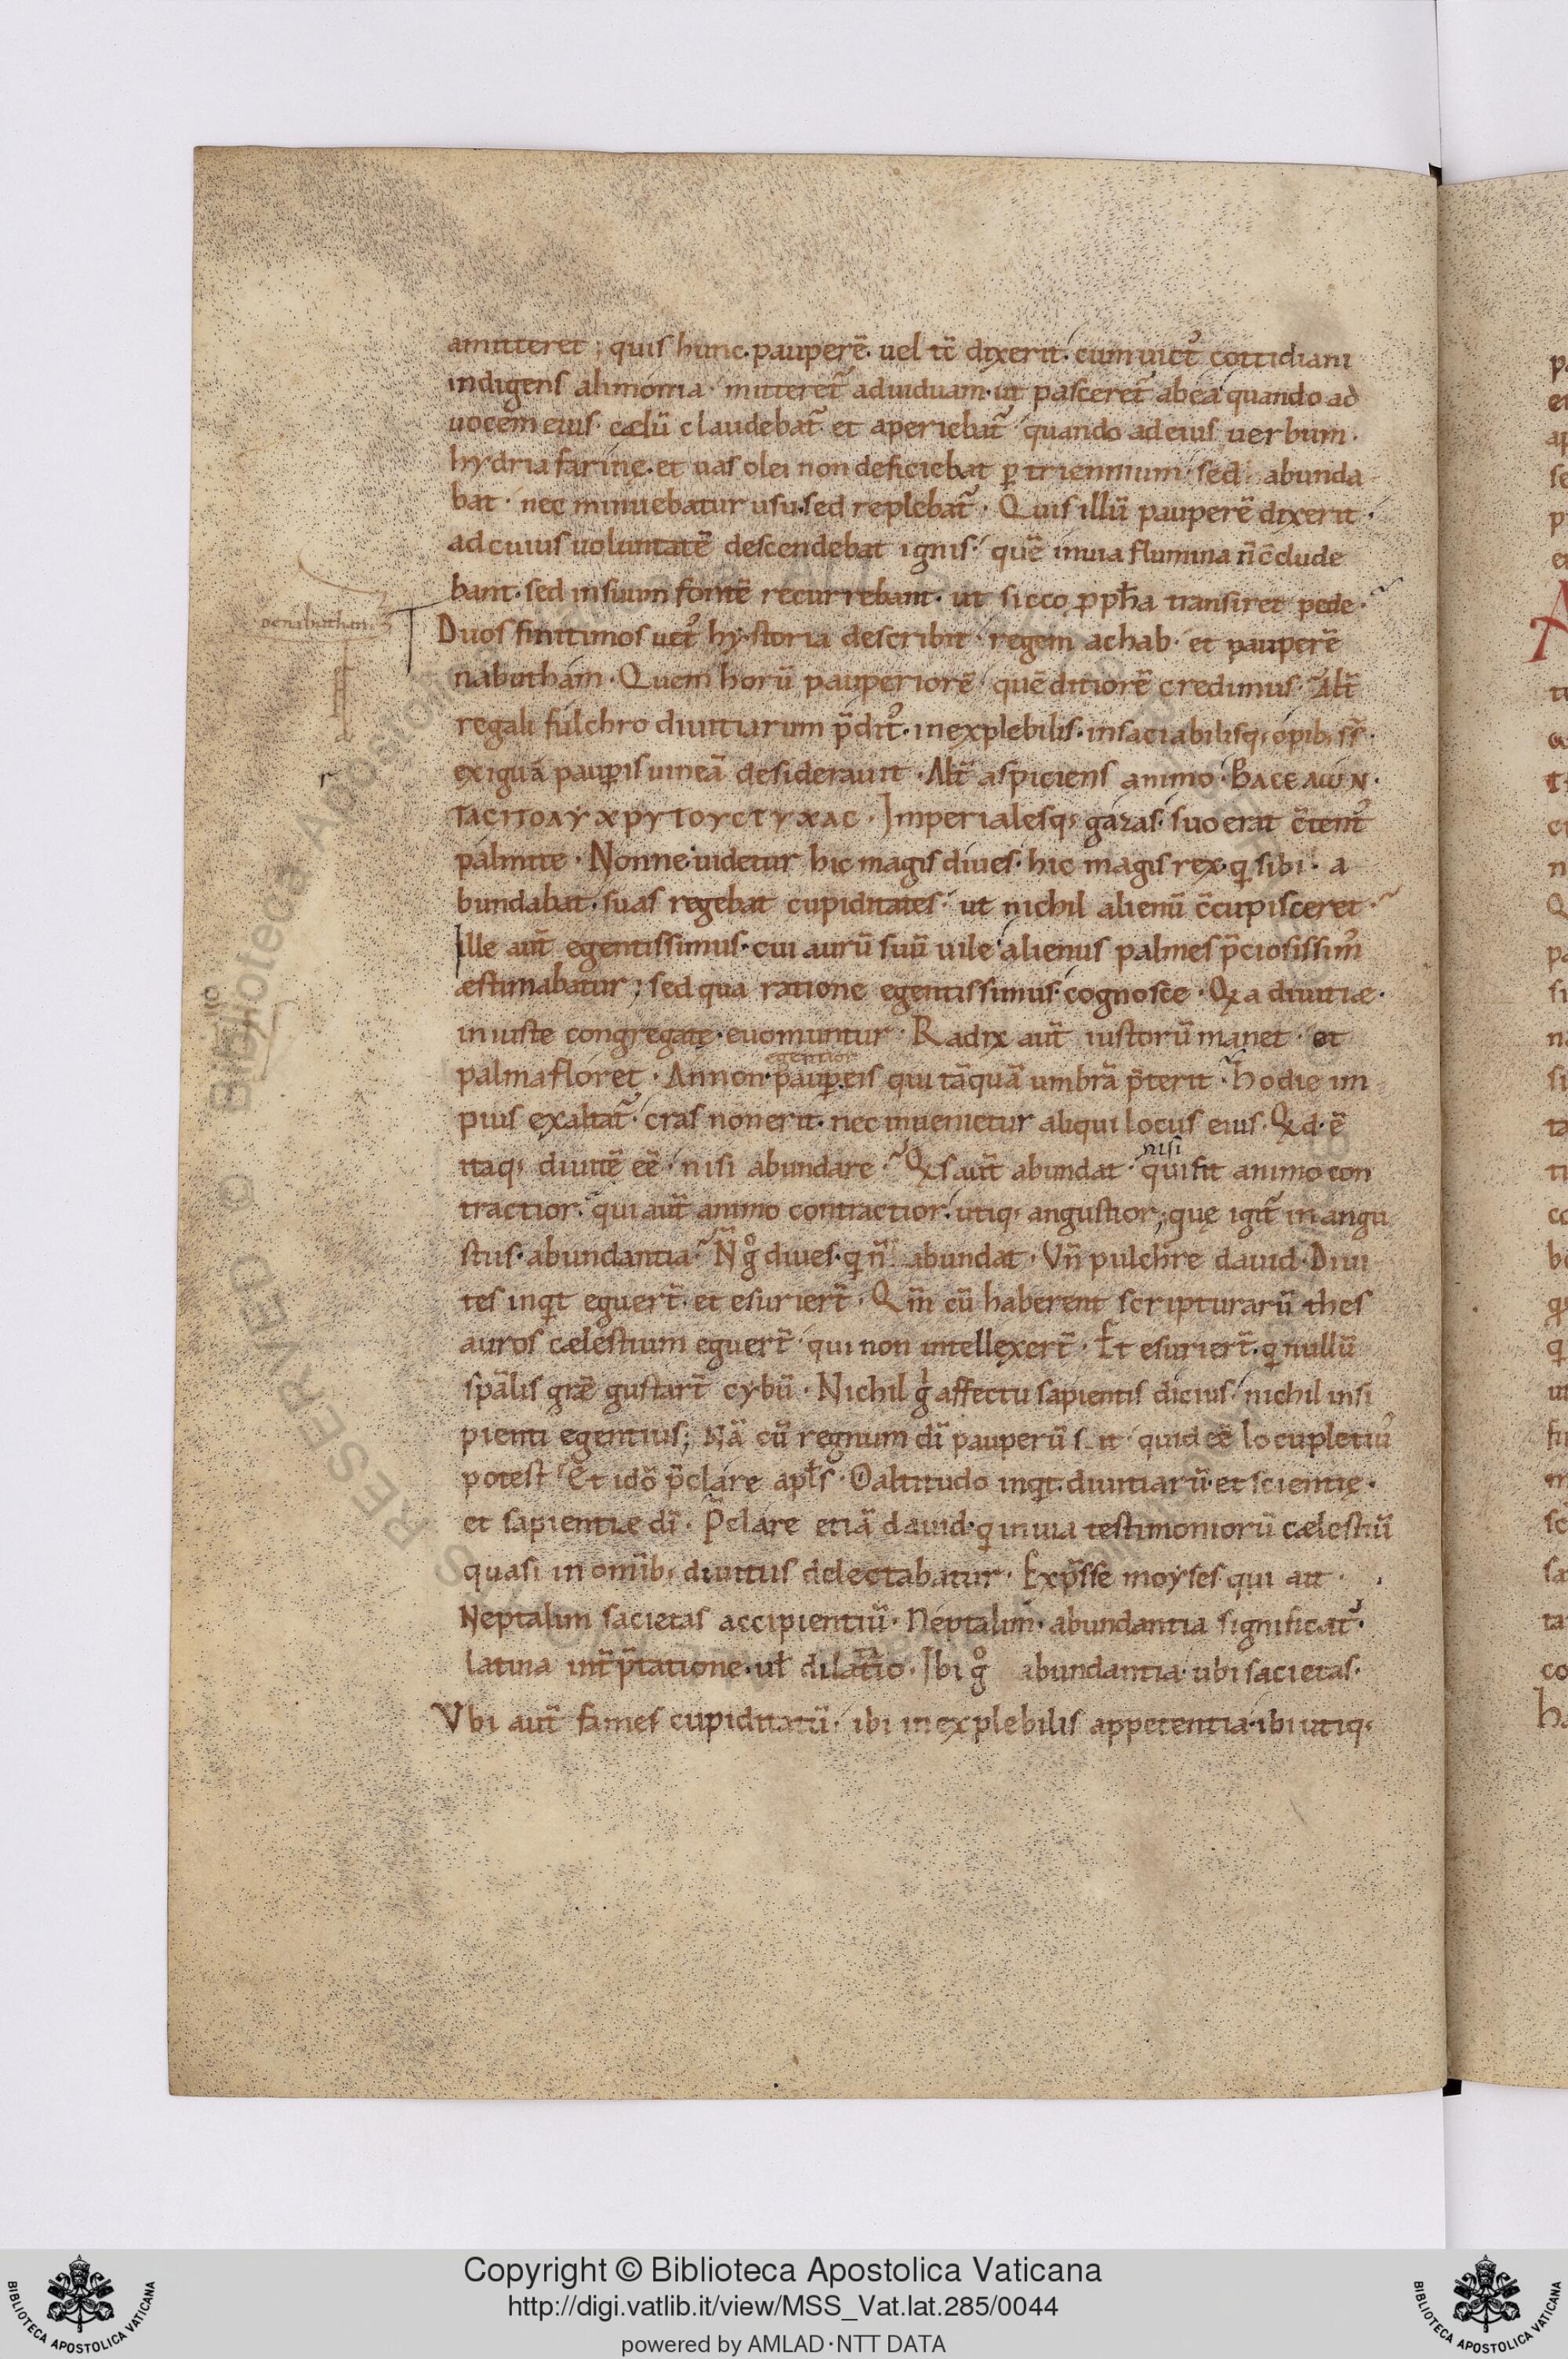 amitteret ; quis hunc · pauperē · uel tc̄ dixerit · cum uict᾽ cottidiani
indigens alimonia · mitteret᷑ aduiduam · ut pasceret᷑ abea quando ad
uocem eius · cælū claudebat᷑ et aperiebat᷑ · quando adeius uerbum ·
hydria farinę · et uas olei non deficiebat ꝑ triennium · sed abunda
bat · nec minuebatur usu · sed replebat᷑ · Quis illū pauperē dixerit ·
adcuius uoluntatē descendebat ignis · quē inuia flumina n̄ c̄clude
bant · sed insuum fontē recurrebant · ut sicco ꝓph̄a transiret pede ·
Duos finitimos uet᾽ hystoria describit · regem achab · et pauperē
nabutham · Quem horū pauperiorē · quē ditiorē credimus · Alt̄
regali fulchro diuitiarum p̄dit᾽ · inexplebilis · insaciabilisq; opib; s̄s̄ ·
exiguā pauꝑis uineā desiderauit · Alt̄ aspiciens animo · ΒΑCΕΛΩΝ ·
ΤΑCΠΟΛΥΧΡΥΤΟΥCΤΥΧΑC · Imperialesq; gazas · suo erat c̄tent᾽
palmite · Nonne uidetur hic magis diues · hic magis rex · q̄ sibi · a
bundabat · suas regebat cupiditates · ut nichil alienū c̄cupisceret ·
Ille aut̄ egentissimus · cui aurū suū uile · alienus palmes p̄ciosissim᾽
æstimabatur ; sed qua ratione egentissimus · cognosce · Qa diuitiæ ·
iniuste congregatę · euomuntur · Radix aut̄ iustorū manet · et
egentior
palmafloret · Annon · pauꝑ eis qui tāquā umbrā p̄terit · hodie im
pius exaltat᷑ · cras non erit · nec inuenietur aliqui locus eius · Qd · ē
nisi
itaq; diuitē eē · nisi abundare · Qs aut̄ abundat · qui fit animo con
tractior · qui aut̄ animo contractior · utiq; angustior ; quę igit᷑ in angu
stus · abundantia · N̄ gͦ diues · q̄ n̄ abundat · Vn̄ pulchre dauid · Diui
tes inqt eguert̄ · et esuriert̄ · Qm̄ cū haberent scripturarū thes
auros cælestium eguert̄ · qui non intellexert̄ · Et esuriert̄ · q̄ nullū
spāl̄is græ gustart̄ cybū · Nichil gⁱ affectu sapientis dicius · nichil insi
pienti egentius ; Nā cū regnum dī pauperū sit · quid eē locupletiu᾽
potest · Et idō p̄clare apl̄s · Oaltitudo inqt · diuitiarū · et scientię ·
et sapientiæ dī · P̄clare etiā dauid · q̄ inuia testimoniorū cælestiū
quasi in omīb; diuitiis delectabatur · Exp̄sse moyses qui ait ·
Neptalim sacietas accipientiū · Neptalim · abundantia significat᷑ ·
latina int̄p̄tatione · ul̄ dilat̄io · Ibi gͦ abundantia · ubi sacietas ·
Vbi aut̄ fames cupiditatū · ibi inexplebilis appetentia · ibi utiq;